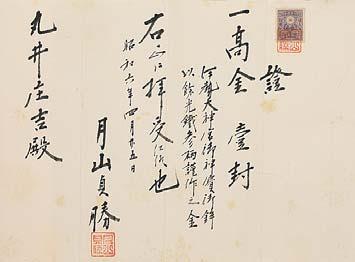 證
一高金壹封
伊勢大神宮御神寶御鉾
以餘光鐵参柄謹作之金
右正に拝受仕候也
昭和六年四月廿五日
月山貞勝
丸井庄吉殿